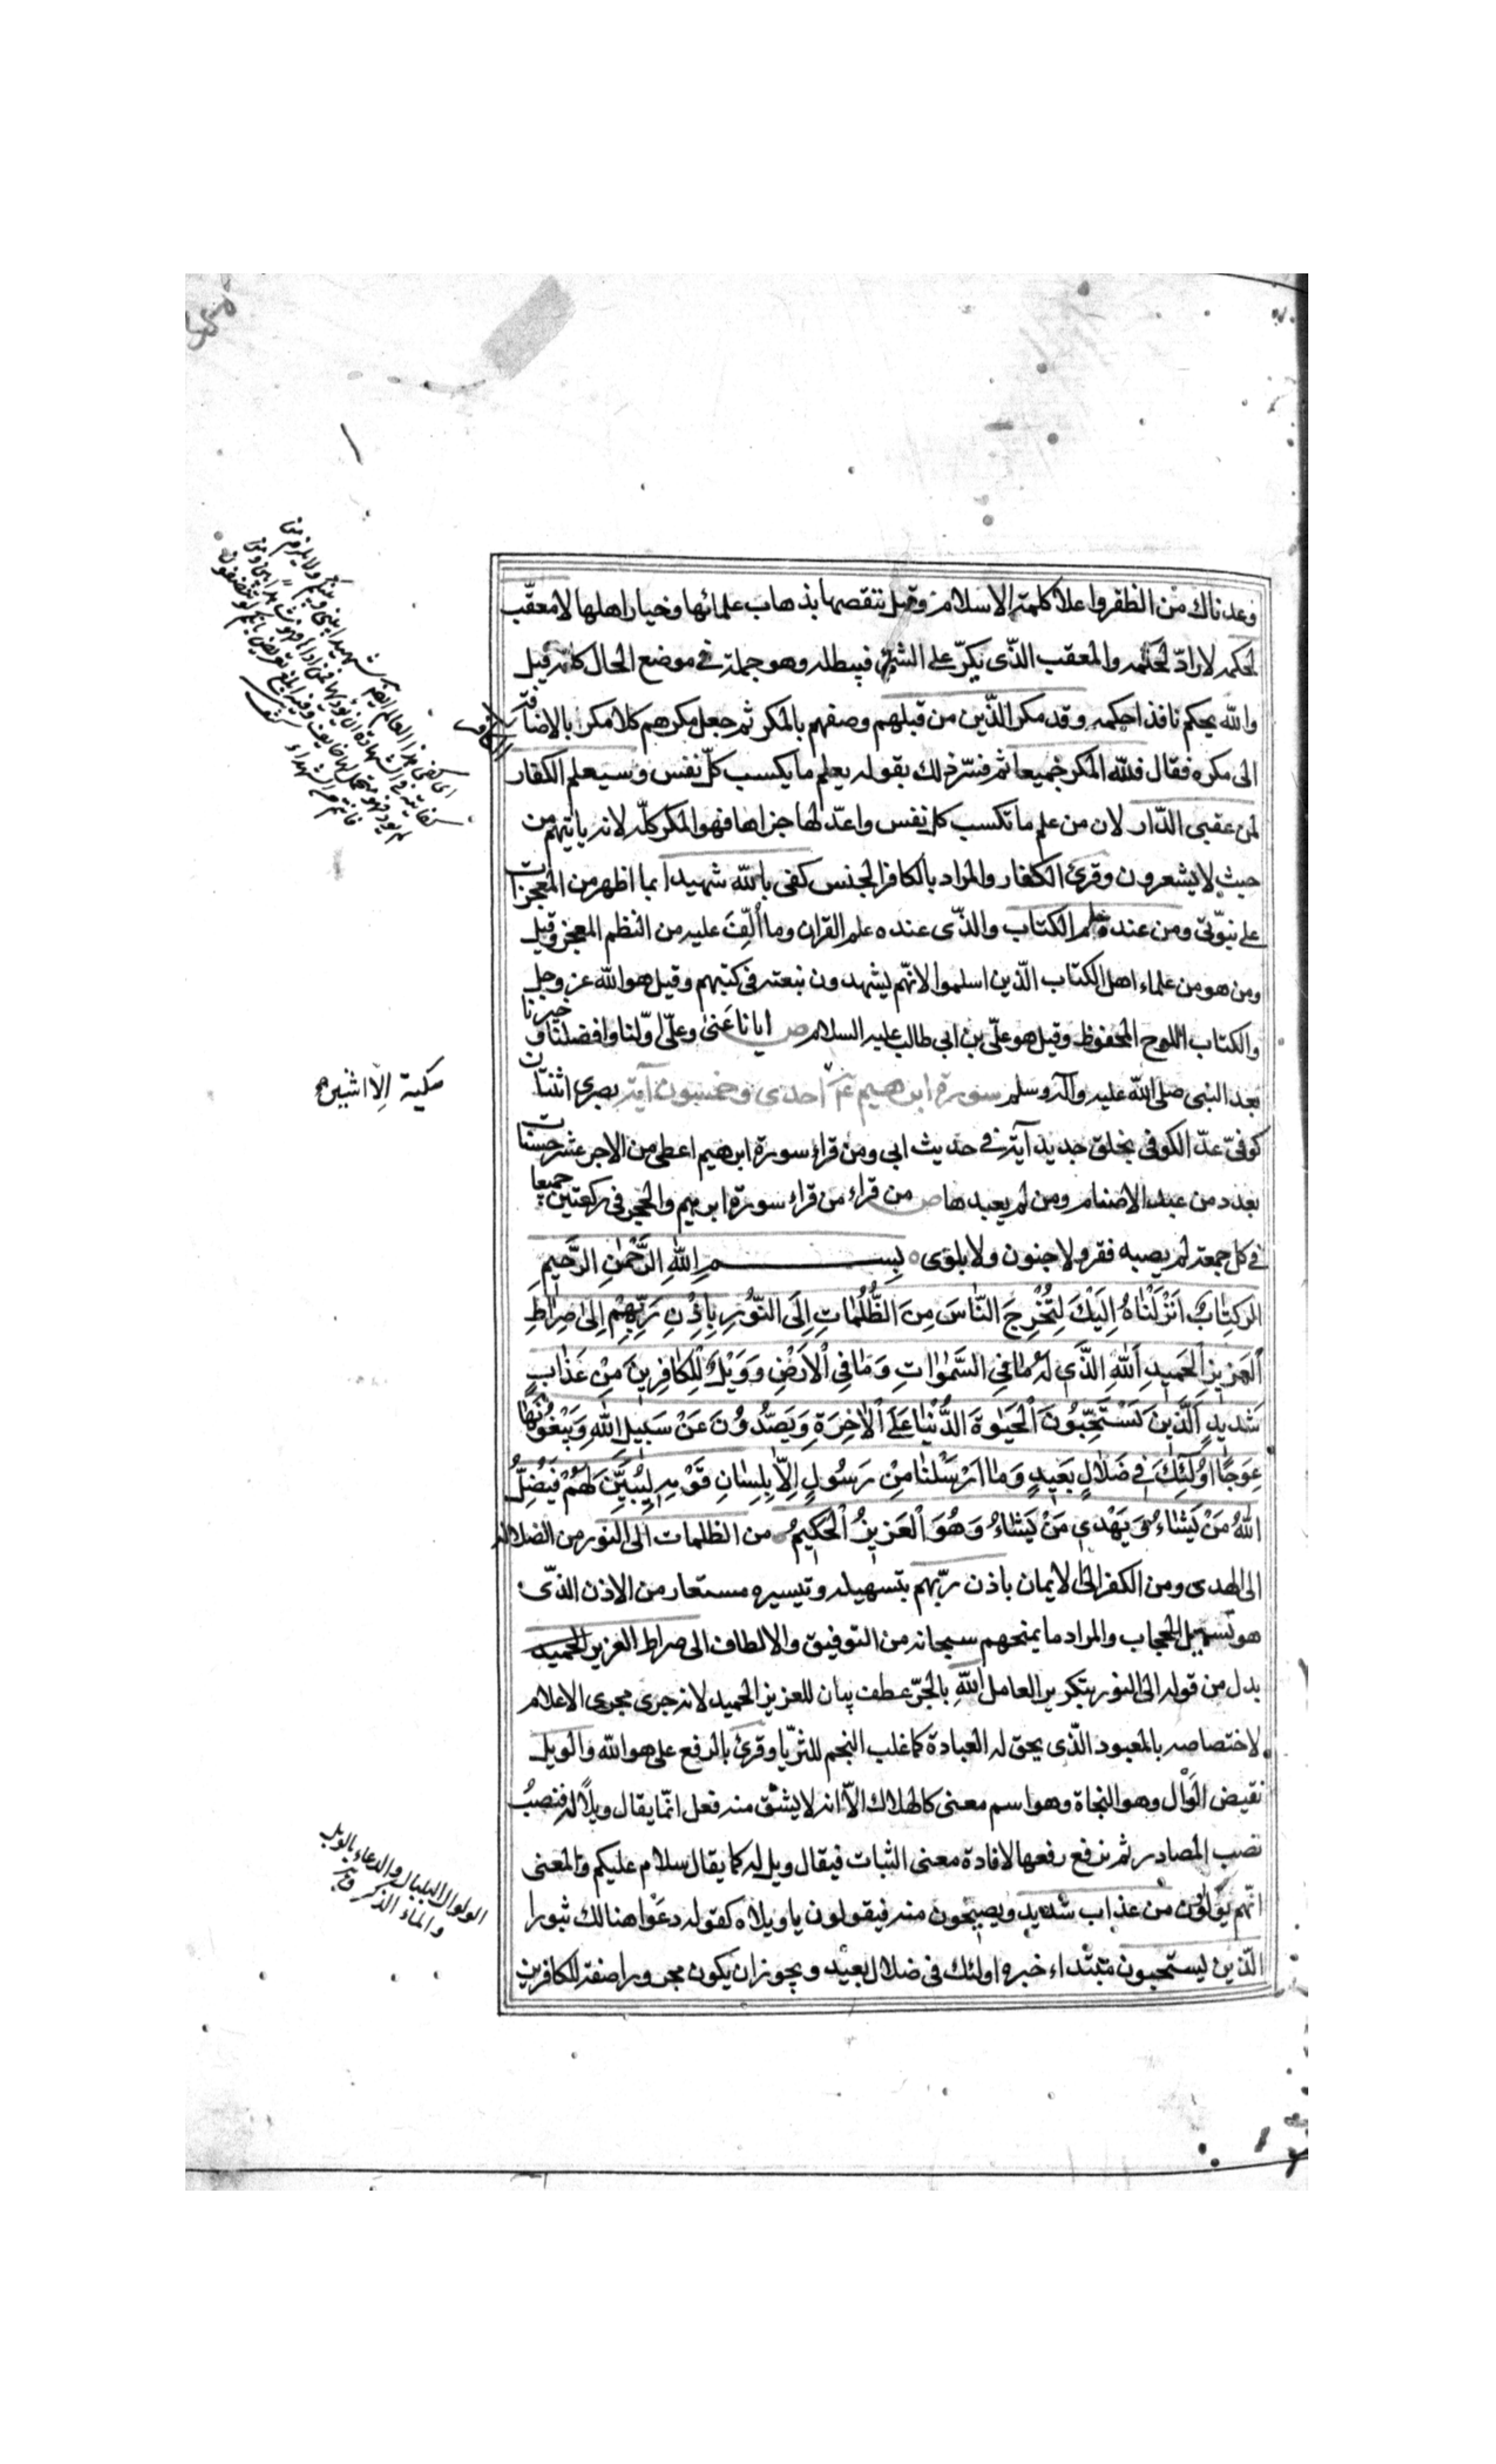 وعدناك من الظفر واعلا كلمة الاسلام وقيل ننقصها بذهاب علمائها وخيار اهلها لا معقّب
لحكمه لا رادّ لحكمه والمعقب الذّى يكرّ على الشئ فيبطله وهو جملة فى موضع الحال كانه قيل
والله يحكم نافذا حكمه وقد مكر الذّين من قبلهم وصفهم بالمكر ثم جعل مكرهم كلا مكر بالاضافة
الى مكره فقال فلله المكر جميعا ثم فسّر ذلك بقوله يعلم ما يكسب كلّ نفس وسيعلم الكفار
لمن عقبى الدّار لان من علم ما تكسب كل نفس واعدّ لها جزاها فهو المكر كلّه لانه ياتيهم من
حيث لا يشعرون وقرئ الكفار والمراد بالكافر الجنس كفى بالله شهيدا بما اظهر من المعجزات
على نبوّتى ومن عنده علم الكتاب والذّى عنده علم القران وما ألّف عليه من النظم المعجز وقيل
ومن هو من علماء اهل الكتاب الّذين اسلموا لانهّم يشهدون بنعته فى كتبهم وقيل هو الله عز وجل
والكتاب اللوح المحفوظ وقيل هو علّى بن ابى طالب عليه السلام ص ايانا عَنىٰ وعلّى اوّلنا وافضلنا وخيرنا
بعد النبى صلى الله عليه وآله وسلم سورة ابرهيم عم احدى وخمسون آية بصرى اثنتان
كوفىّ عدّ الكوفى بخلق جديد آية فى حديث ابى ومن قراء سورة ابرهيم اعطى من الاجر عشر حسنات
بعدد من عبد الاصنام ومن لم يعبدها ص من قراء من قراء سورة ابرهيم والحجر فى ركعتين جميعا
فى كل جمعة لم يصبه فقر ولا جنون ولا بلوى بِسمِ اللهِ الرَّحْمٰنِ الرَّحيمِ
الر كِتٰابٌ اَنْزَلْنٰاهُ اِلَيْكَ لِتُخْرِجَ النّٰاسَ مِنَ الظُّلُمٰاتِ اِلَى النّوُرِ بِاِذْنِ رَبِّهِمْ اِلىٰ صِرٰاطِ
الْعَزيزِ الْحَميدِ اَللهِ الَّذى لَهُ مٰا فِى السَّمٰوٰاتِ وَمٰا فِى الْاَرْضِ وَوَيْلٌ لِلْكٰافِرينَ مِنْ عَذٰابٍ
شَديدٍ اَلَّذينَ يَسْتَحِبُّونَ الْحَيٰوةَ الدُّنْيٰا عَلَى الْاٰخِرَةِ وَيَصُدُّونَ عَنْ سَبيلِ اللهِ وَيَبْغُونَهٰا
عِوَجًا اوُلٰئِكَ فى ضَلٰالٍ بَعيدٍ وَمٰا اَرْسَلْنٰا مِنْ رَسُولٍ اِلّٰا بِلِسٰانِ قَوْمِهِ لِيُبَيِّنَ لَهُمْ فَيُضِلُّ
اللهُ مَنْ يَشٰاءُ وَيَهْدى مَنْ يَشٰاءُ وَهُوَ الْعَزيزُ الْحَكيمُ من الظلمات الى النور من الضلالة
الى الهدى ومن الكفر الى الايمان باذن ربّهم بتسهيله وتيسيره مستعار من الاذن الذّى
هو تسهيل الحجاب والمراد ما يمنحهم سبحانه من التوفيق والالطاف الى صراط العزيز الحميد
بدل من قوله الى النور بتكرير العامل اللهِ بالجرّ عطف بيان للعزيز الحميد لانه جرى مجرى الاعلام
لاختصاصه بالمعبود الّذى يحق له العبادة كما غلب النجم للثريّا وقرئ بالرفع على هو الله والويل
نقيض الوَال وهو النجاة وهو اسم معنى كالهلاك الاّ انه لا يشتق منه فعل انمّا يقال ويلاً له فنصبُ
نصب المصادر ثم نرفع رفعها لافادة معنى الثبات فيقال ويل له كما يقال سلام عليكم والمعنى
انّهم يولون من عذاب شديد ويصيحون منه فيقولون يا ويلاه كقوله دعَوْا هنالك ثبورا
الذّين يستحبون مبتداء خبره اولئك فى ضلال بعيد ويجوز ان يكون مجرورا صفة للكافرين
مكية الاّ اثنين
الولوال البلبال والدعاء بالويل